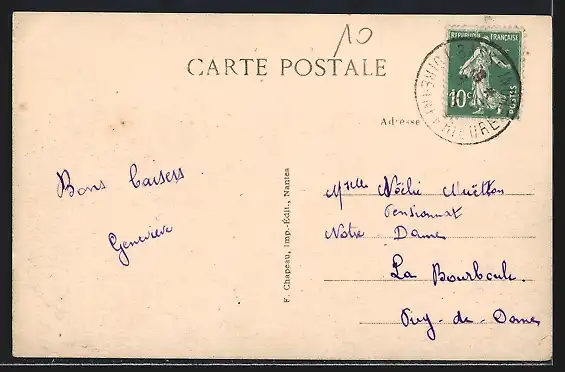 10
CARTE POSTALE
REPUBLIQUE FRANÇAISE
10c
POSTES
Adresse
INFERIEURE
F. Chapeau, Imp.-Édit., Nantes
Bons baisers
Geneviève
Melle Noëlie
Pensionnat
Notre Dame
La Bourboule.
Puy-de-Dome